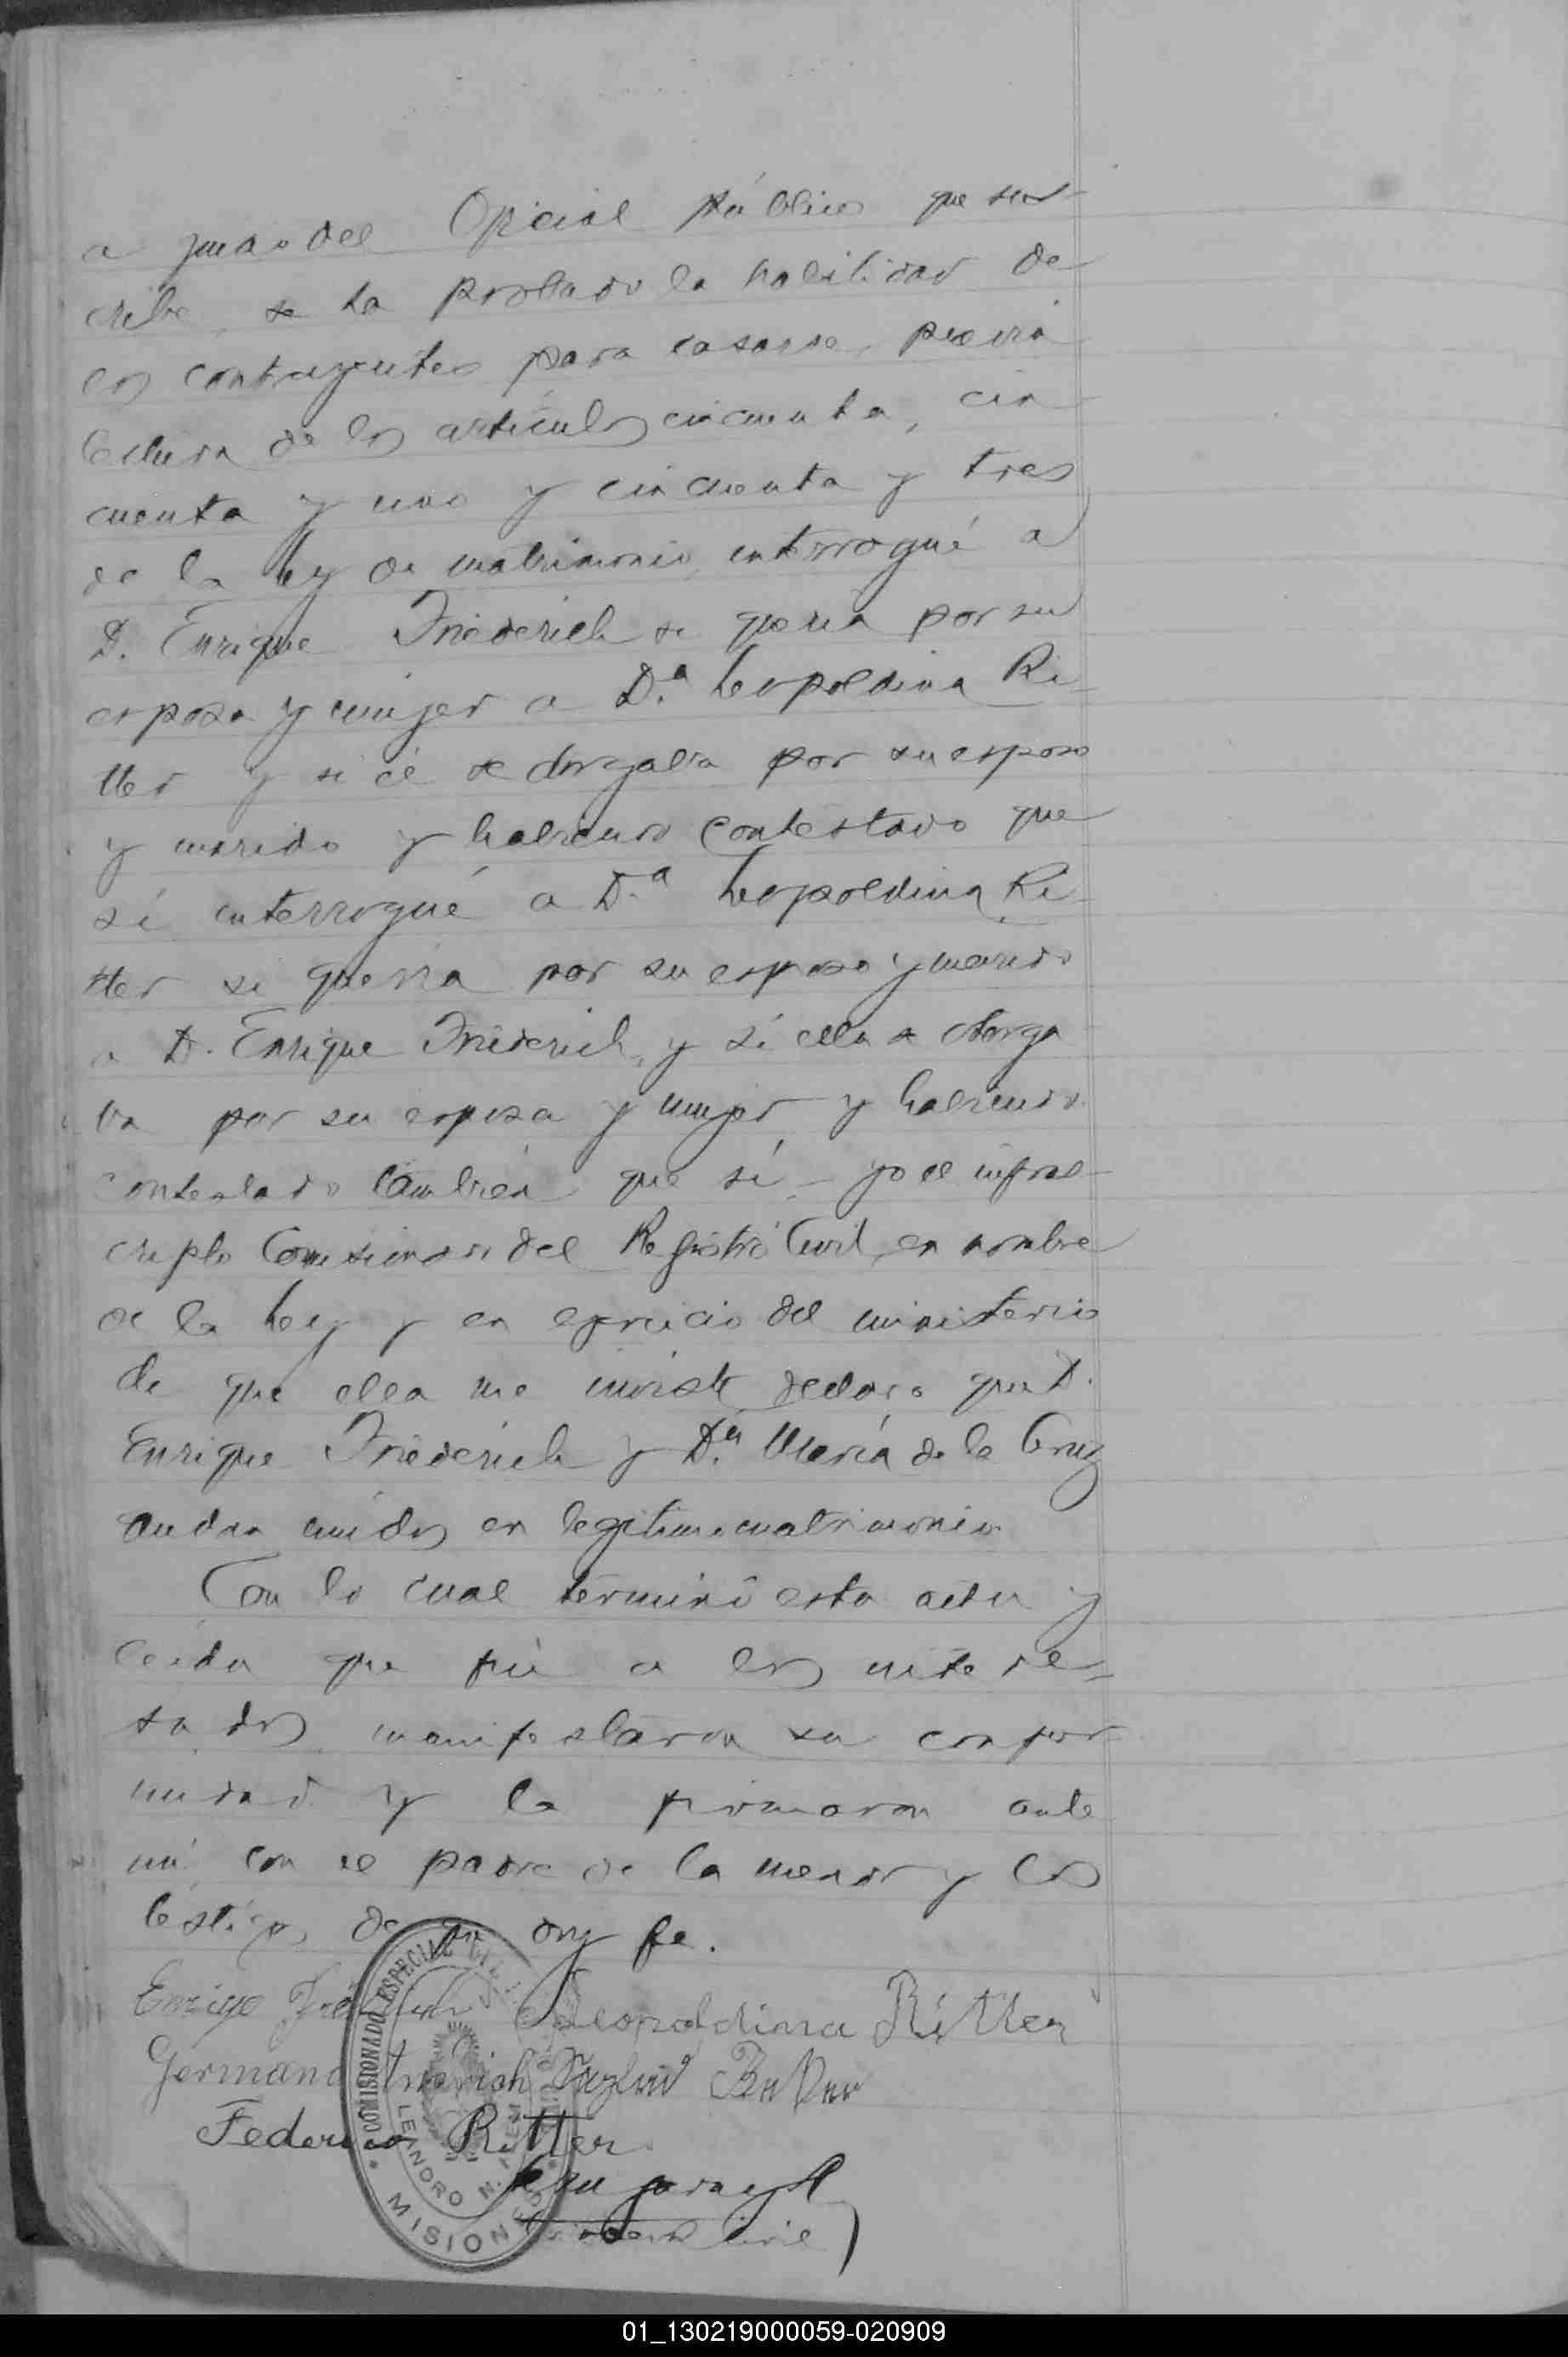 a juicio del Oficial público que sus-
cribe, se ha probado la habilidad de
los contrayentes para casarse, previa
lectura de los artículos cincuenta, cin
cuenta y uno y cincuenta y tres
de la ley de matrimonio, interrogué a
D. Enrique Friederich si queria por su
esposa y mujer a D.ª Leopoldina Ri-
tter y si él se otorgaba por su esposo
y marido y habiendo contestado que
sí interrogué a D.ª Leopoldina Ri-
tter si queria por su esposo y marido
a D. Enrique Friederich, y si ella se otorga
ba por su esposa y mujer y habiendo
contestado también que sí, - yo el infras-
cripto Comisionado del Registro Civil, en nombre
de la ley y en ejercicio del ministerio
de que ella me inviste declaro que D.
Enrique Friederich y D.ª María de la Cruz
quedan unidos en legitimo matrimonio.
Con lo cual terminó esta acta y
leida que fué a los intere-
sados manifestaron su confor
midad y la firmaron ante
mí con el padre de la menor y los
testigos de que doy fe.
Enrique Friederich Leopoldina Ritter
Germano Friederich
Federico Ritter
COMISIONADO ESPECIAL
LEANDRO N. ALEM
MISIONES
01_130219000059-020909